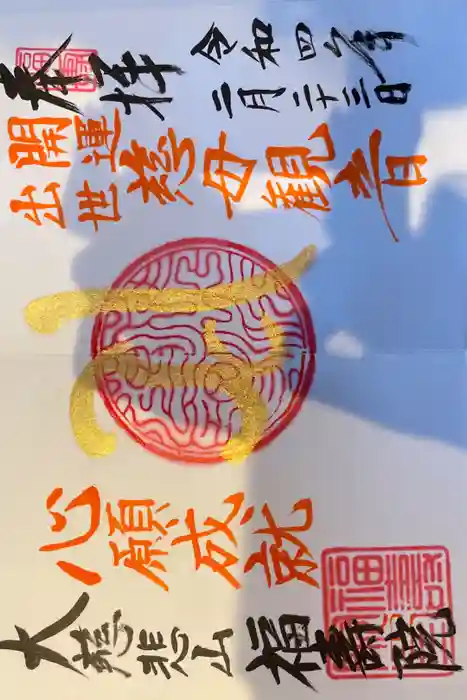 奉拝
令和四年
二月二十三日
開運
出世
慈母観音
心願成就
大慈悲山
福寿院